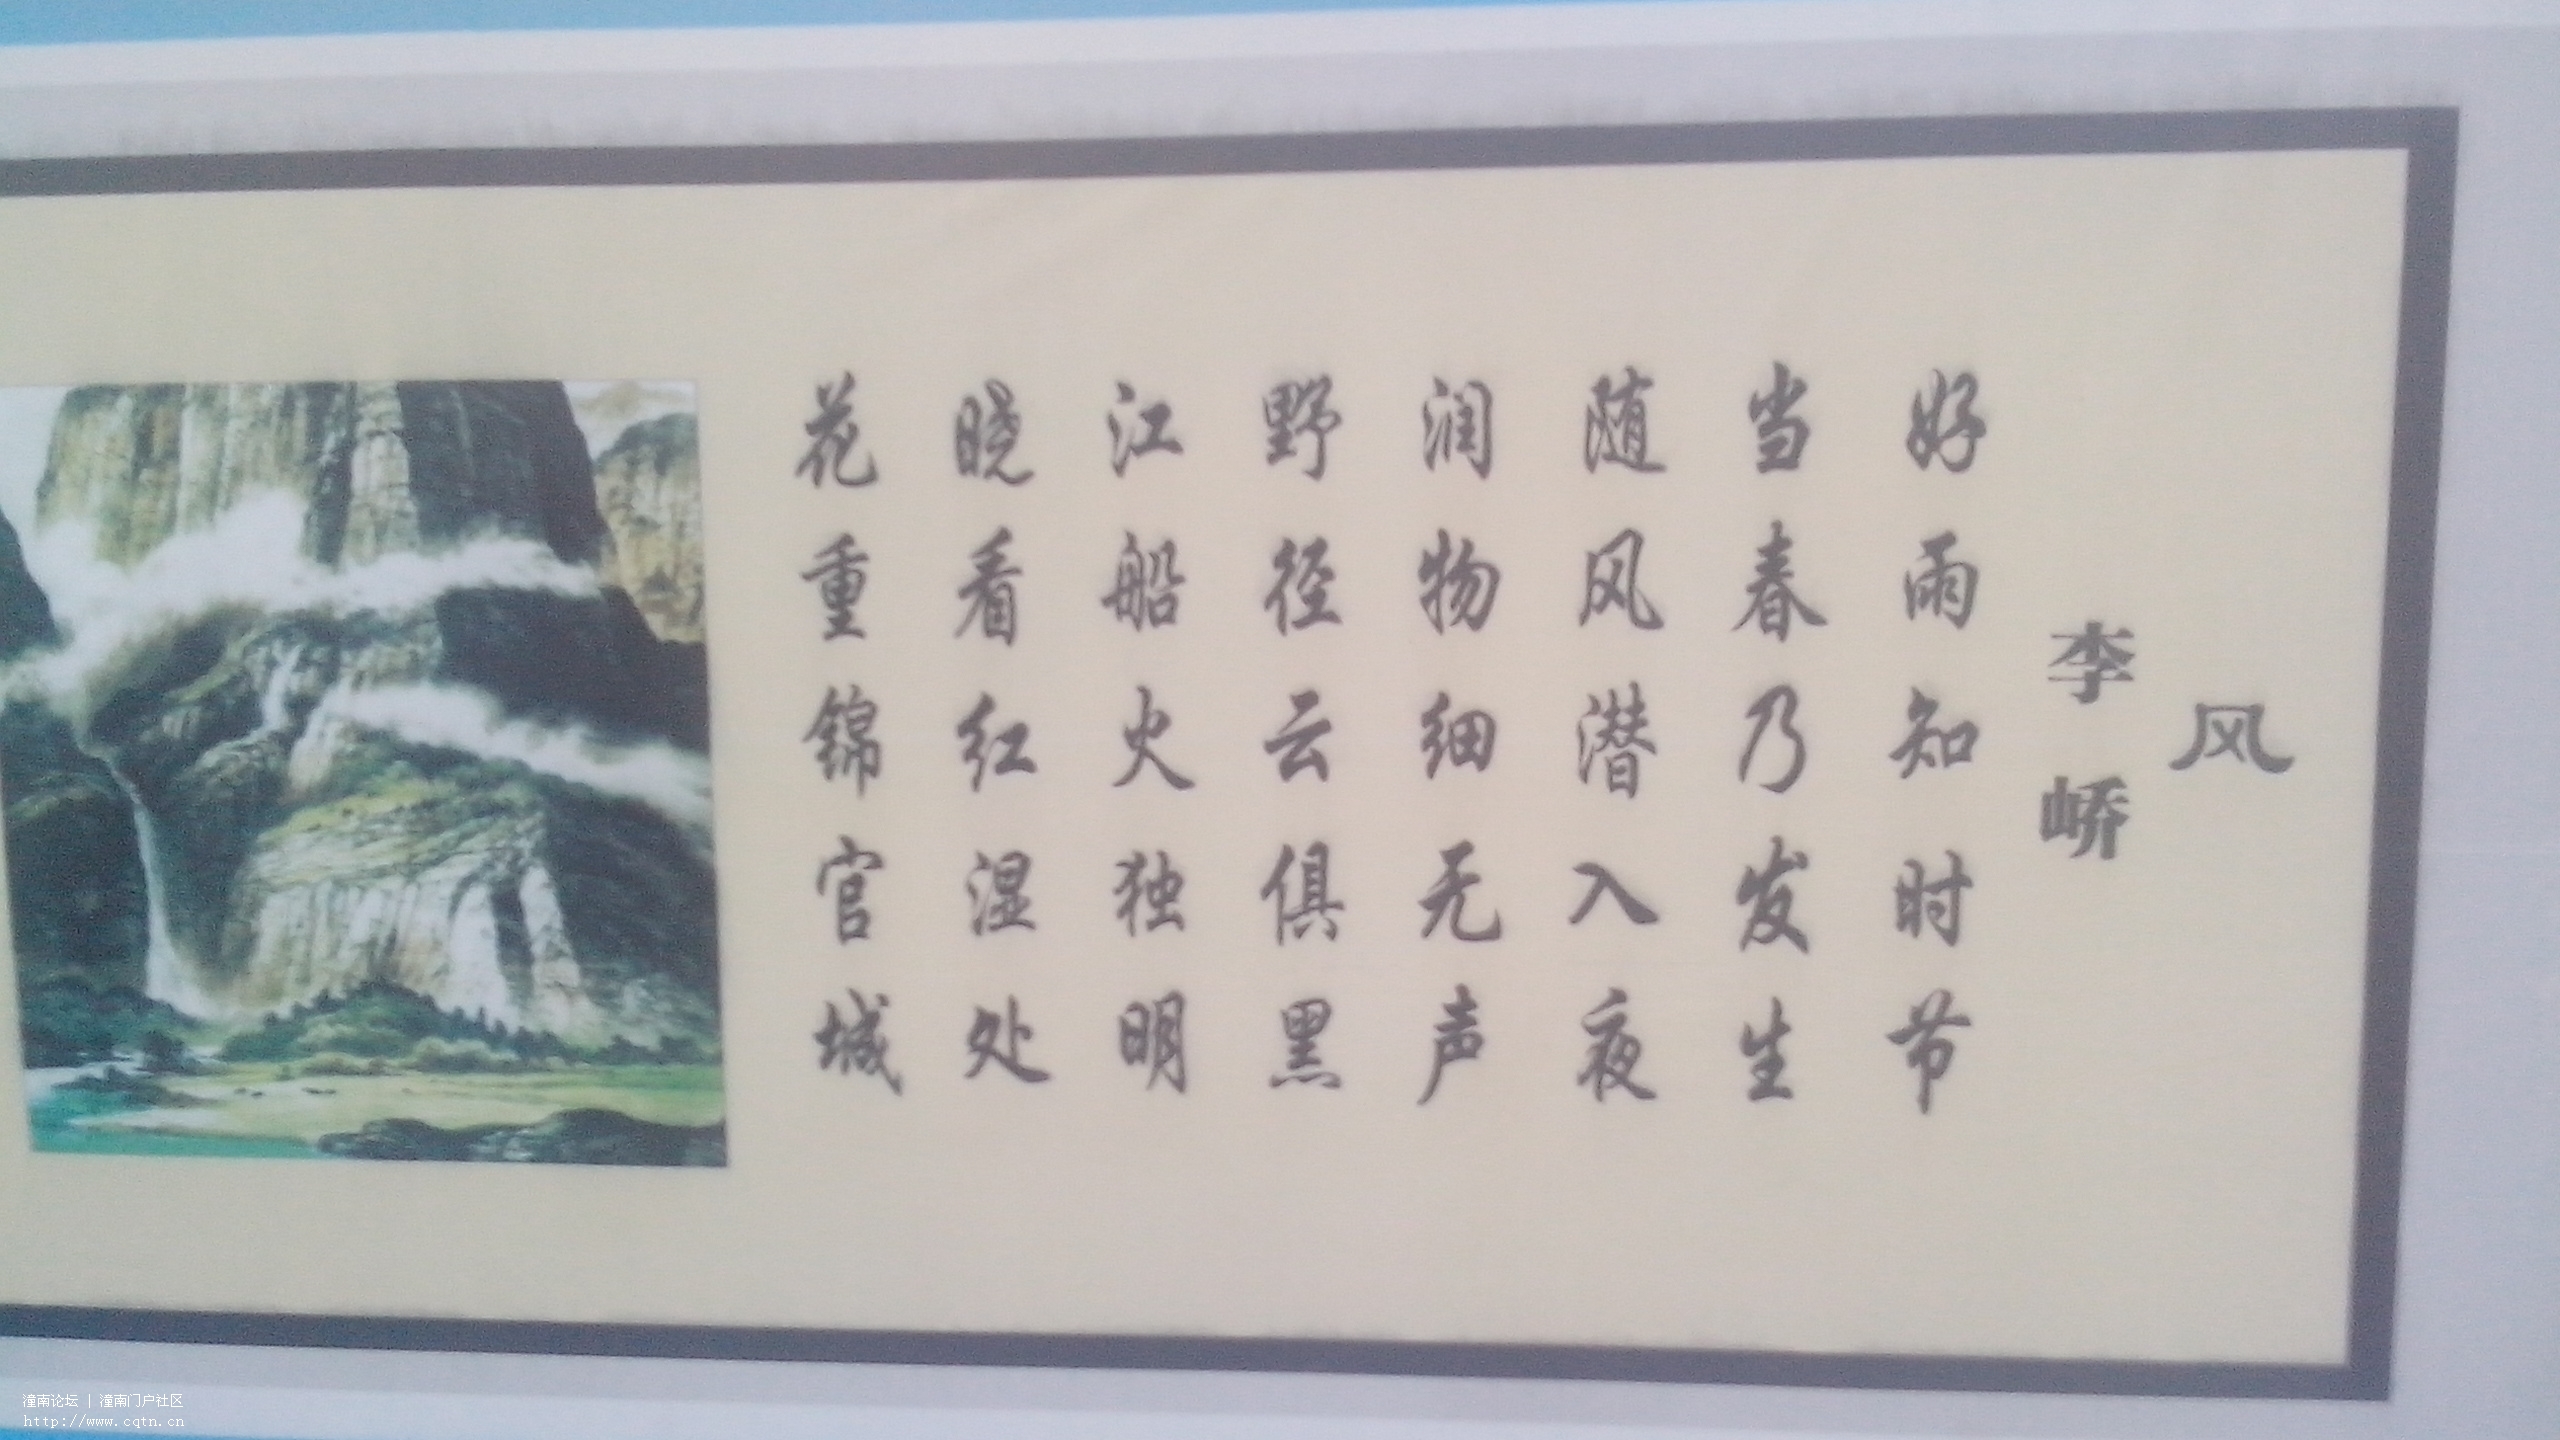 风
李峤
好雨知时节
当春乃发生
随风潜入夜
润物细无声
野径云俱黑
江船火独明
晓看红湿处
花重锦官城
潼南论坛 | 潼南门户社区
http://www.cqtn.cn